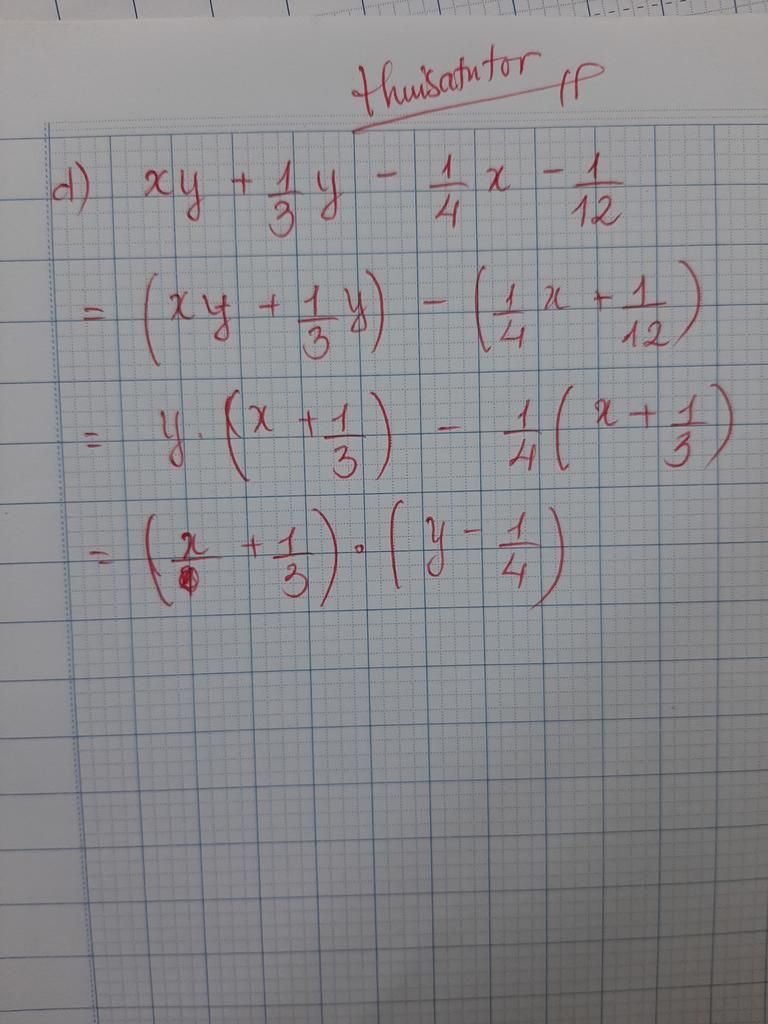 thuisatutor
d) xy + 1/3 y - 1/4 x - 1/12
= (xy + 1/3 y) - (1/4 x + 1/12)
= y . (x + 1/3) - 1/4 (x + 1/3)
= (x + 1/3) . (y - 1/4)